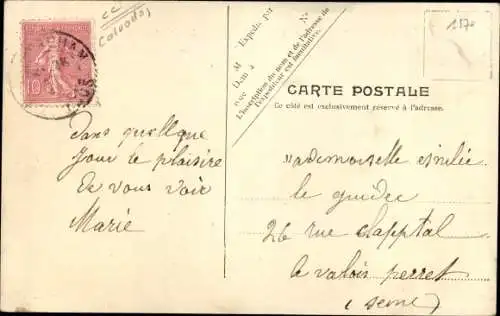 cc
(Calvados)
1570
10
Expédié par
M
Dem à
rue
N°
L'inscription du nom et de l'adresse de
l'expéditeur est facultative.
CARTE POSTALE
Ce côté est exclusivement réservé à l'adresse.
Dans quellque
Jour le plaisire
De vous voir
Marie
Mademoiselle émilie
le guidée
26 rue Chapptal
a valois perret
(Seine)